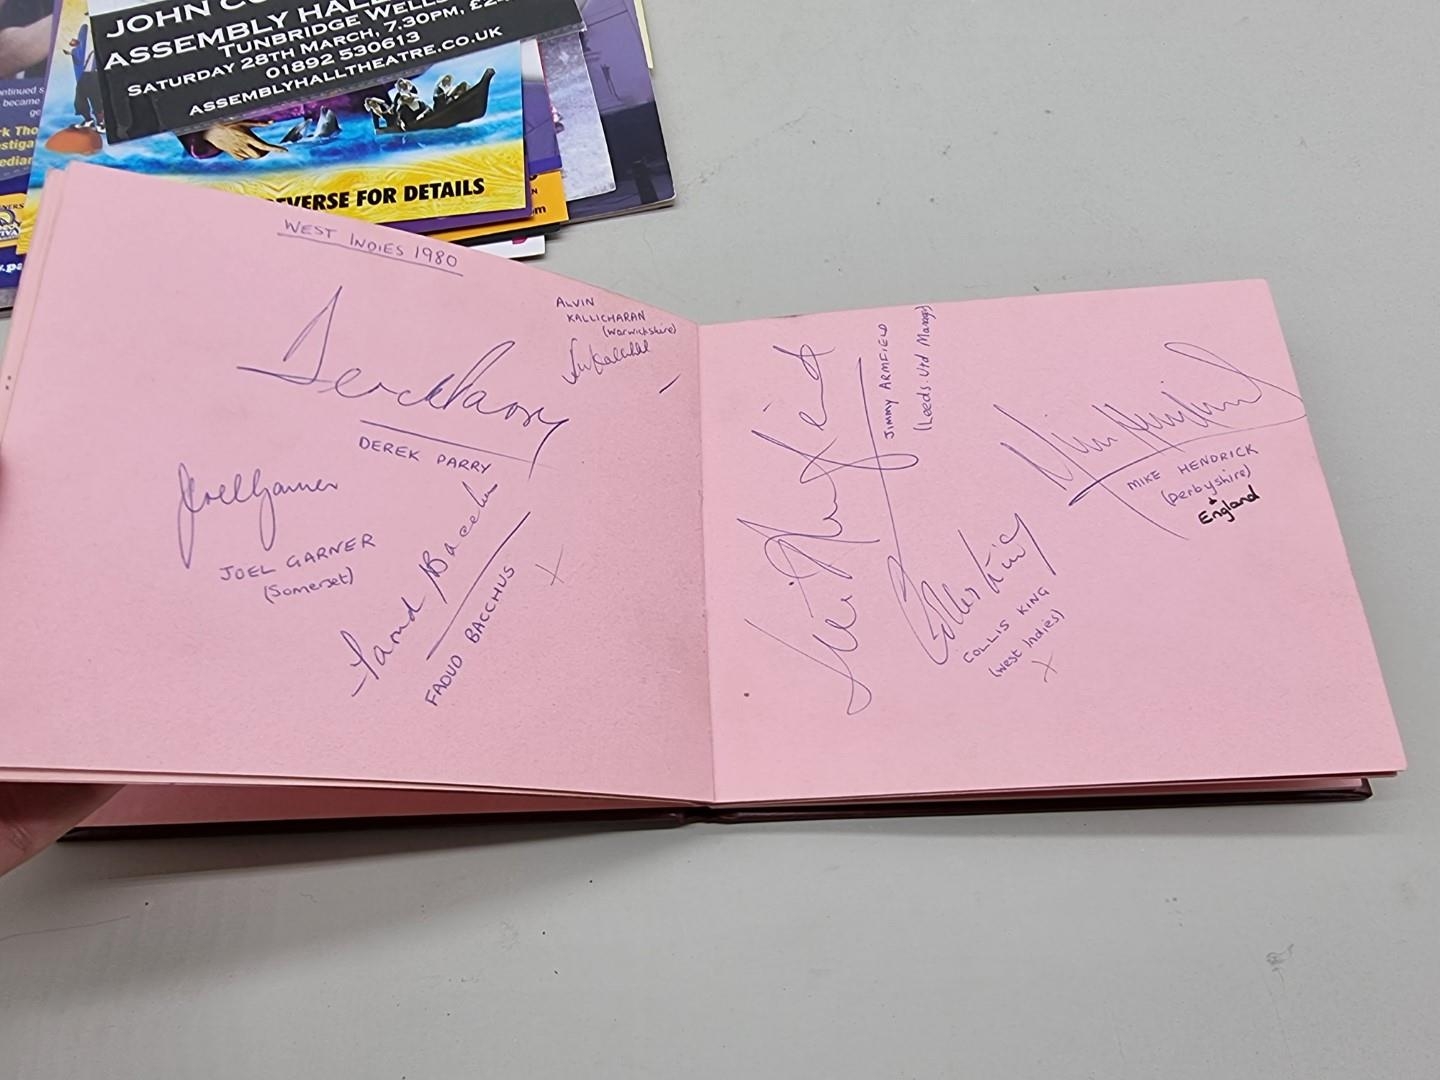 JOHN CO
ASSEMBLY HALL
TUNBRIDGE WELLS
SATURDAY 28TH MARCH, 7.30PM, £2
01892 530613
ASSEMBLYHALLTHEATRE.CO.UK
ntinued s
became
ge
rk Tho
estiga
edian
EVERSE FOR DETAILS
WEST INDIES 1980
ALVIN
KALLICHARAN
(Warwickshire)
Derek Parry
DEREK PARRY
Joel Garner
JOEL GARNER
(Somerset)
Faoud Bacchus
FAOUD BACCHUS
X
JIMMY ARMFIELD
(Leeds Utd Manager)
Mike Hendrick
MIKE HENDRICK
(Derbyshire)
+
England
Collis King
COLLIS KING
(West Indies)
X